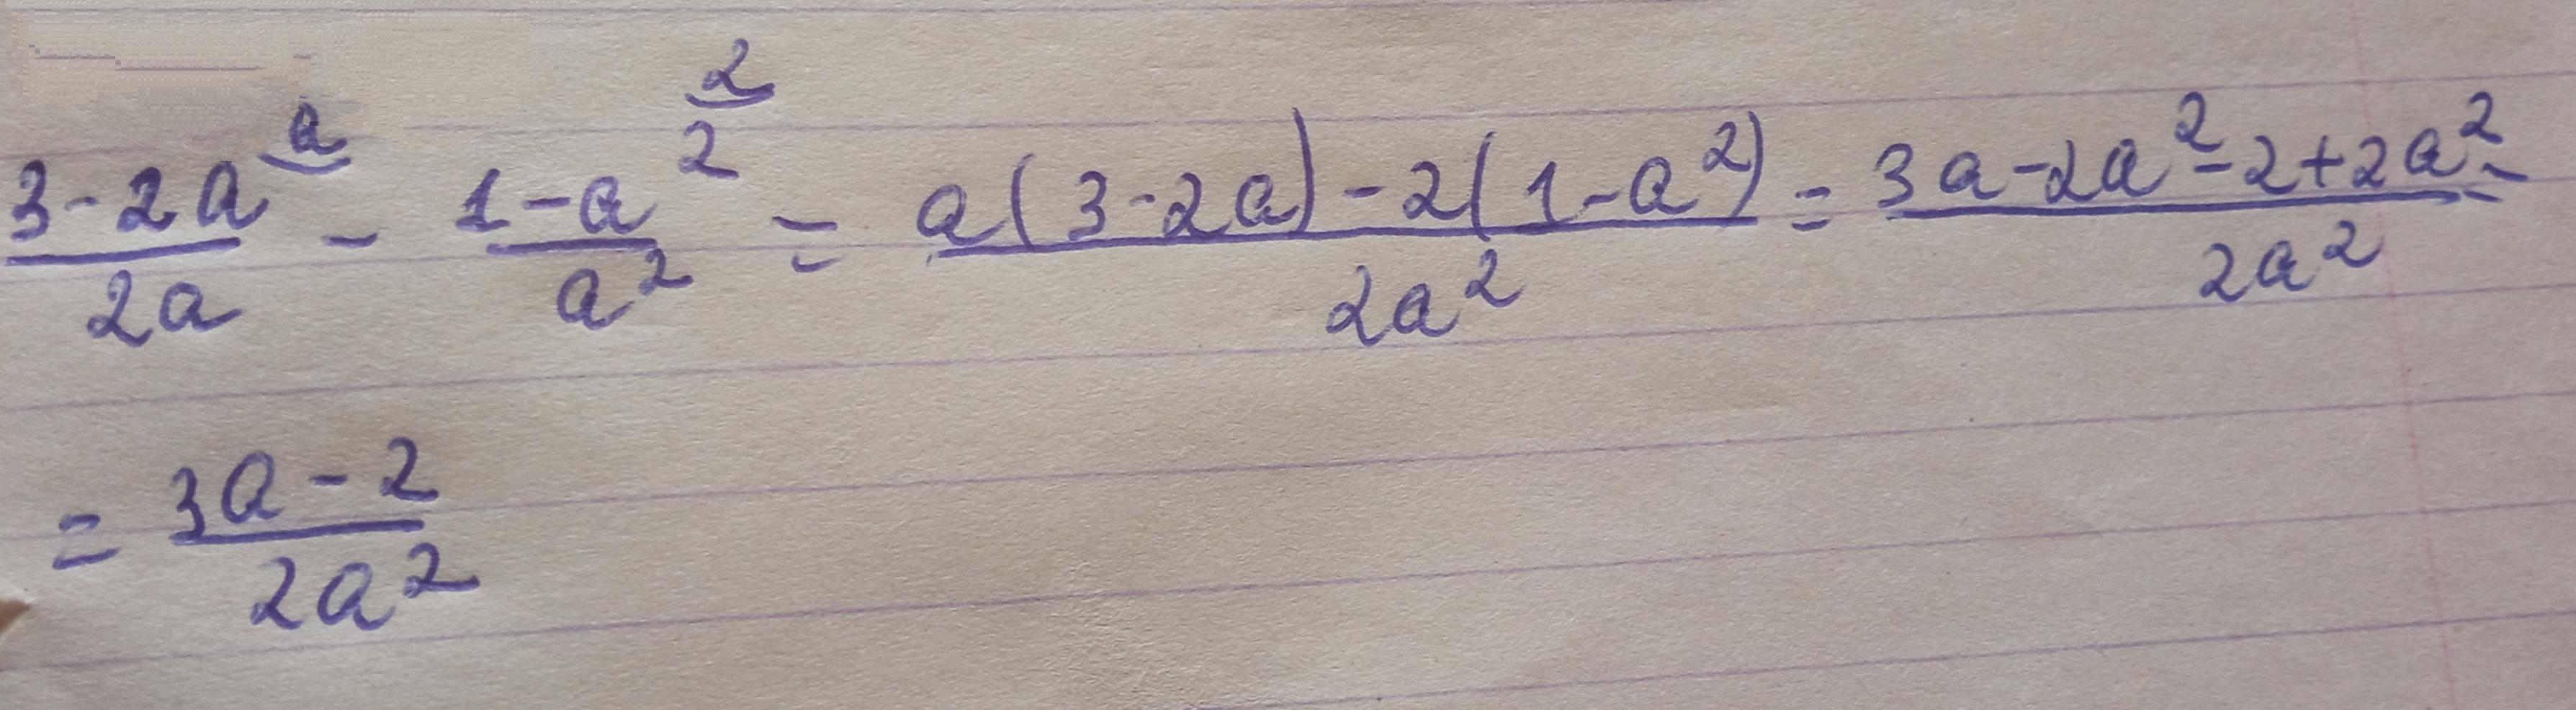 \frac{3-2a}{2a}^{\underline{a}} - \frac{1-a^2}{a^2}^{\underline{2}} = \frac{a(3-2a)-2(1-a^2)}{2a^2} = \frac{3a-2a^2-2+2a^2}{2a^2} =
= \frac{3a-2}{2a^2}